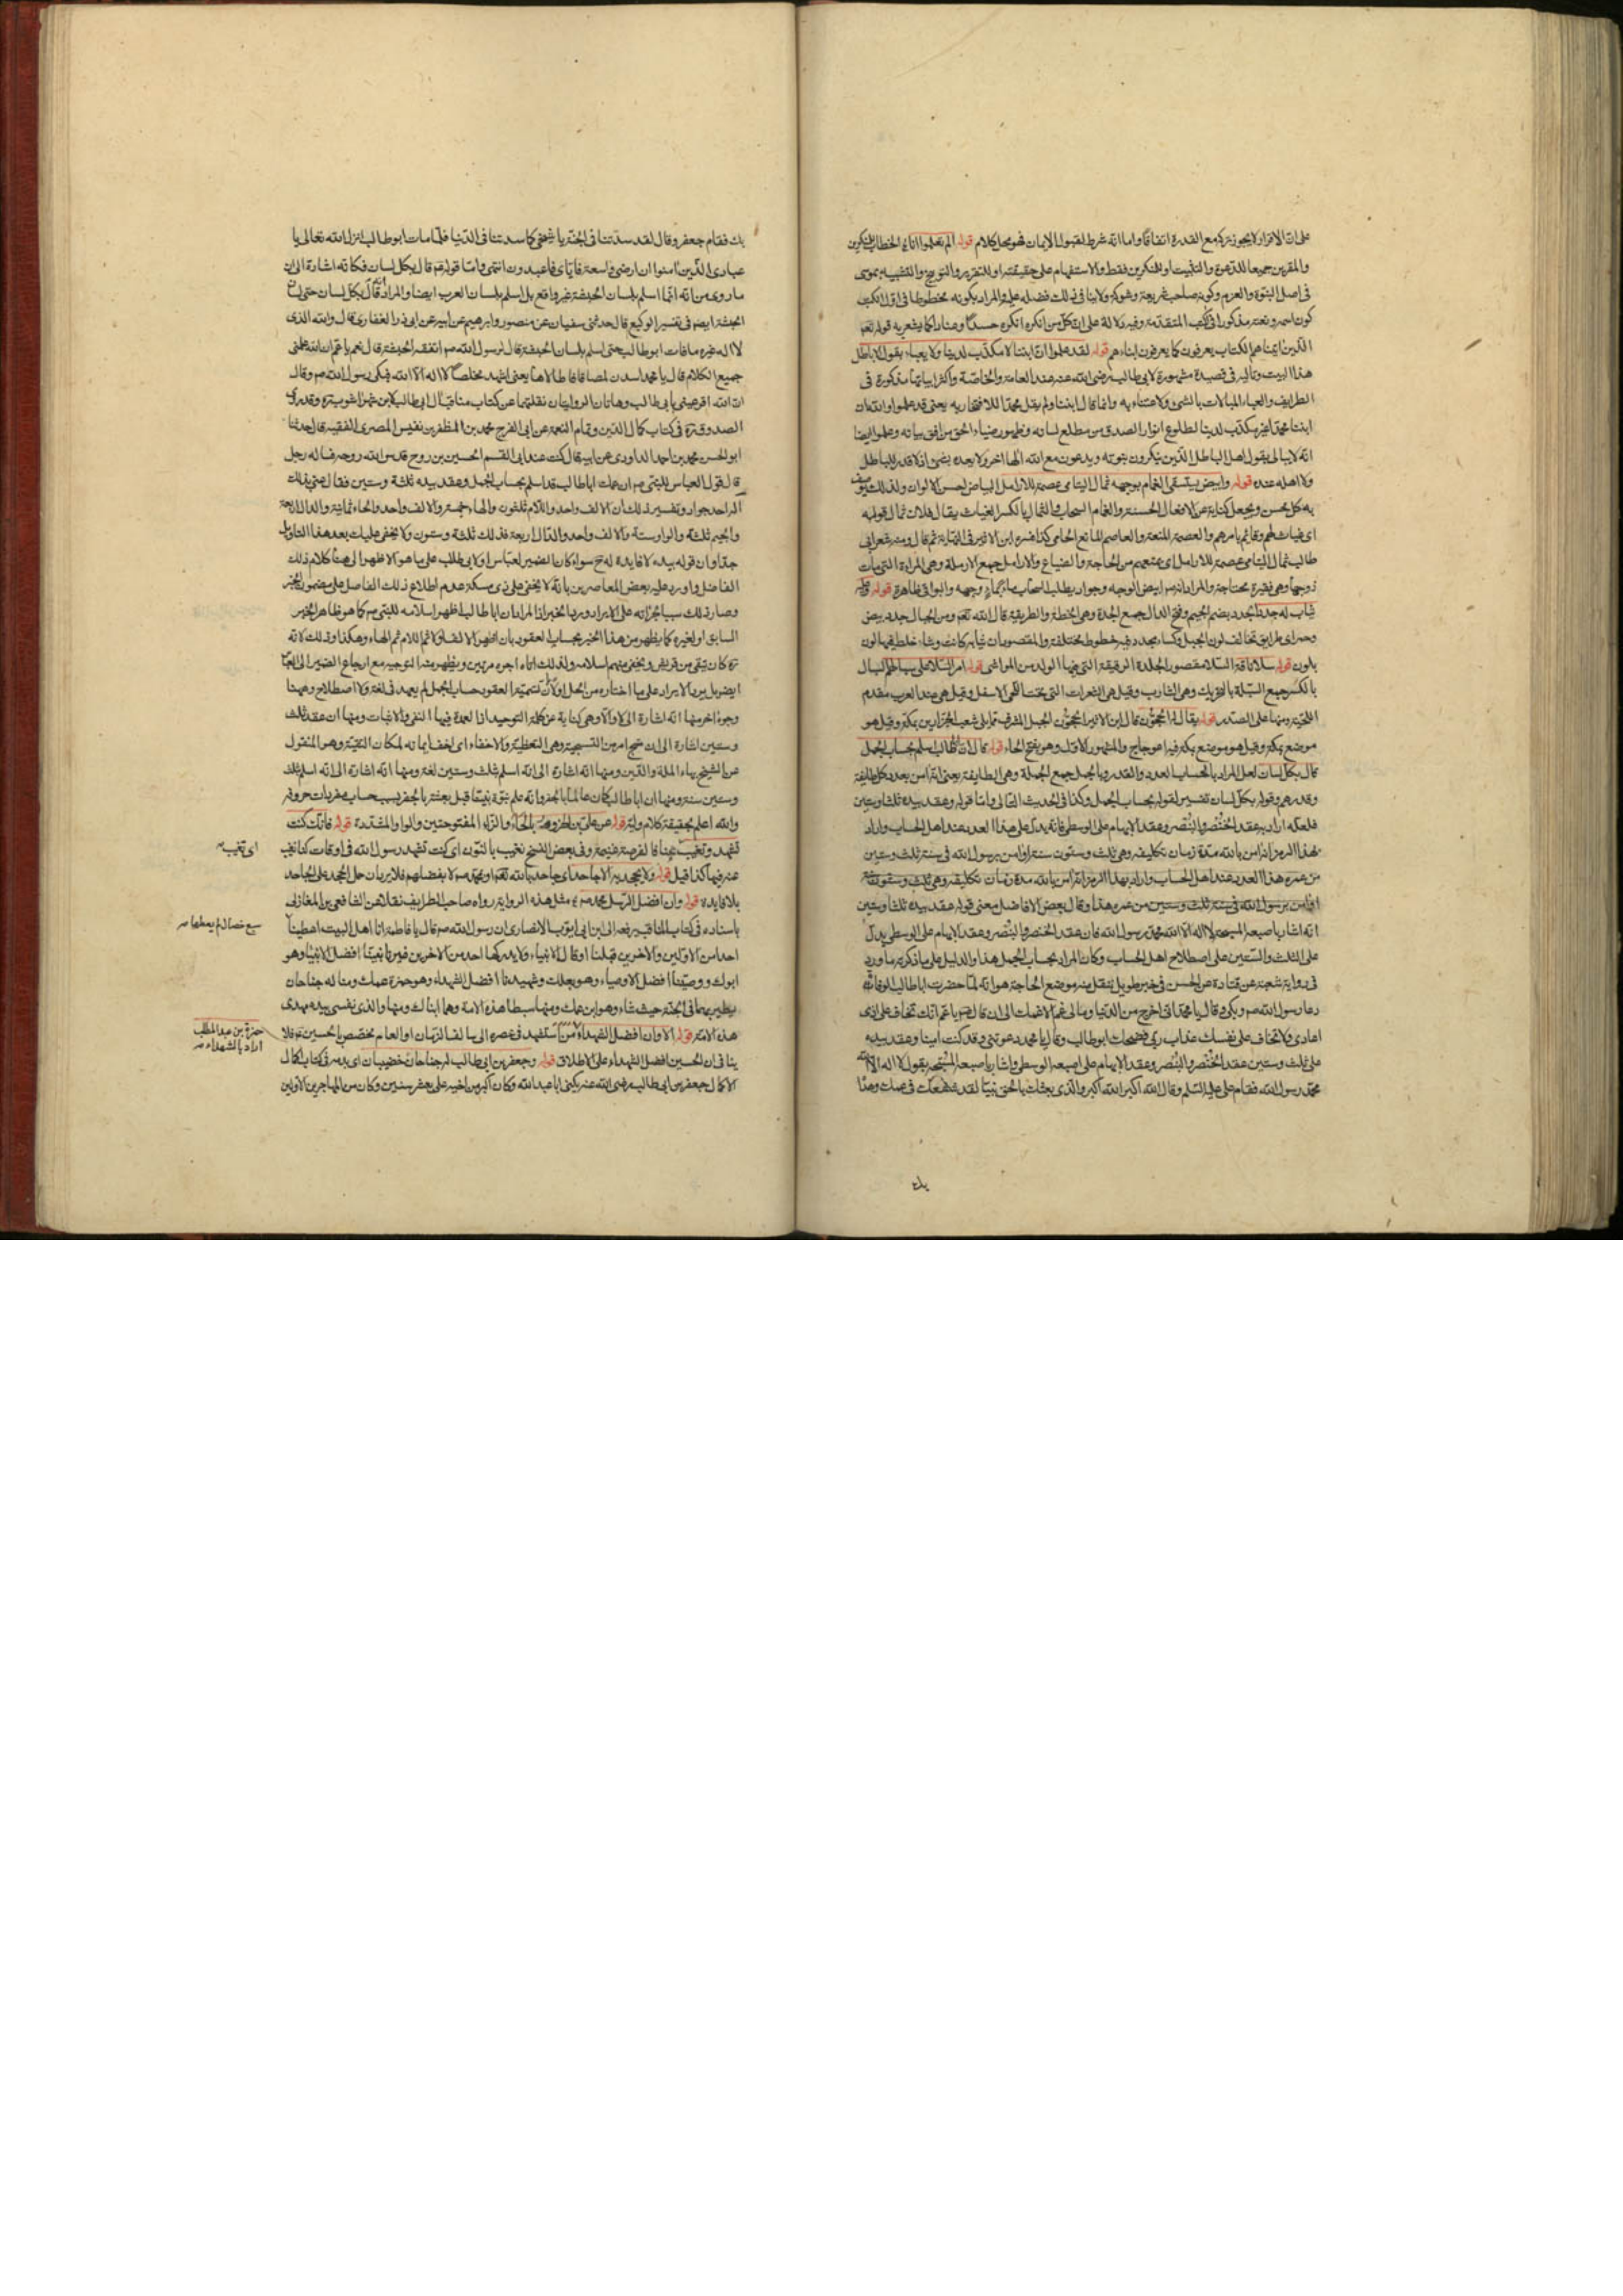 على ان الاقرار لا يجوز تركه مع القدرة اتفاقا واما انه شرط لقبول الايمان فهو محل كلام قوله الم تعلموا انا الخطاب للمنكرين
والمقرين جميعا للدعوة والتثبيت او للمنكرين فقط والاستفهام على حقيقته او للتقرير والتوبيخ والتشبيه بموسى
في اصل النبوة والعزم وكونه صاحب شريعة وشوكة ولا ينافى ذلك فضله عليه والمراد بكونه مخطوطا في اول الكتب
كون اسمه ونعته مذكورا في الكتب المتقدمة وفيه دلالة على ان كل من انكره انكره حسدا وعنادا كما يشعر به قوله تعم
الذين اتيناهم الكتاب يعرفونه كما يعرفون ابناءهم قوله لقد علموا ان ابننا لا مكذب لدينا ولا يعبأ بقول الاباطل
هذا البيت وتاليه في قصيدة مشهورة لابي طالب رضى الله عنه عند العامة والخاصة واكثر ابياتها مذكورة في
الطرايف والعباء المبالات بالشئ والاعتناء به وانما قال ابننا ولم يقل محمدا للافتخار به يعنى قد علموا والله ان
ابننا محمدا غير مكذب لدينا لطلوع انوار الصدق من مطلع لسانه وظهور ضياء الحق من افق بيانه وعلموا ايضا
انه لا يبالى بقول اهل الباطل الذين ينكرون نبوته ويدعون مع الله الها اخر ولا يعده بشئ اذ لا قدر للباطل
ولا اهله عنده قوله وابيض يستسقى الغمام بوجهه ثمال اليتامى عصمة للارامل البياض لحسن الالوان ولذلك يوصف
به كل حسن ويجعل كناية عن الافعال الحسنة والغمام السحاب والثمال بالكسر الغياث يقال فلان ثمال قومه
اى غياث لهم وقائم بامرهم والعصمة المنعة والعاصم المانع الحامى كذا فسره ابن الاثير في النهاية ثم قال ومنه شعر ابى
طالب ثمال اليتامى عصمة للارامل اى يمنعهم من الحاجة والضياع والارامل جمع الارملة وهى المراءة التى مات
زوجها وهى فقيرة محتاجة والمراد انه صم ابيض الوجه وجواد يطلب السحاب بماء وجهه والبواقى ظاهرة قوله وعليه
ثياب له جدد الجدد بضم الجيم وفتح الدال جمع الجدة وهى الخطة والطريقة قال الله تعم ومن الجبال جدد بيض
وحمر اى طرايق تخالف لون الجبل وكساء مجدد فيه خطوط مختلفة والمقصود ان ثيابه كانت وشاء خلط فيها لون
بلون قوله سلا ناقة السلا مقصور الجلدة الرقيقة التى فيها الولد من المواشى قوله امر السلا على سبالهم السبال
بالكسر جمع السبلة بالتحريك وهى الشارب وقيل هى الشعرات التى تحت اللحى الاسفل وقيل هى عند العرب مقدم
اللحية ومنها على الصدر قوله يقال له الحجون قال ابن الاثير الحجون الجبل المشرف مما يلى شعب الجزارين بمكة وقيل هو
موضع بمكة وقيل هو موضع بمكة فيه اعوجاج والمشهور الاول وهو بفتح الحاء قوله قال ان ابا طالب اسلم بحساب الجمل
قال بكل لسان لعل المراد بالحساب العدد والقدر وبالجمل جمع الجملة وهى الطايفة يعنى انه امن بعدد كل طايفة
وقدرهم وقوله بكل لسان تفسير لقوله بحساب الجمل وكذا في الحديث التالى واما قوله وعقد بيده ثلثا وستين
فلعله اراد به عقد الخنصر والبنصر وعقد الابهام على الوسطى فانه يدل على هذا العدد عند اهل الحساب واراد
بهذا الرمز انه امن بالله مدة زمان تكليفه وهى ثلث وستون سنة او امن برسول الله في سنة ثلث وستين
من عمره هذا العدد عند اهل الحساب واراد بهذا الرمز انه امن بالله مدة زمان تكليفه وهى ثلث وستون سنة
او امن برسول الله في سنة ثلث وستين من عمره هذا وقال بعض الافاضل معنى قوله عقد بيده ثلثا وستين
انه اشار باصبعه المسبحة لا اله الا الله محمد رسول الله فان عقد الخنصر والبنصر وعقد الابهام على الوسطى يدل
على الثلث والستين على اصطلاح اهل الحساب وكان المراد بحساب الجمل هذا والدليل على ما ذكرته ما ورد
في رواية شعبة عن قتادة عن الحسن في خبر طويل ننقل منه موضع الحاجة هو انه لما حضرت ابا طالب الوفاة
دعا رسول الله صم وبكى وقال يا محمد انى اخرج من الدنيا ومالى غم الا غمك الى ان قال صم يا عم انك تخاف على اذى
اعادى ولا تخاف على نفسك عذاب ربى فضحك ابو طالب وقال يا محمد دعوتنى وقد كنت امينا وعقد بيده
على ثلث وستين عقد الخنصر والبنصر وعقد الابهام على اصبعه الوسطى واشار باصبعه المسبحة يقول لا اله الا الله
محمد رسول الله فقام على عليه السلم وقال الله اكبر الله اكبر والذى بعثك بالحق نبيا لقد شفعك في عمك وهداه
بك
بك فقام جعفر وقال لقد سدتنا في الجنة يا شيخى كما سدتنا في الدنيا فلما مات ابو طالب انزل الله تعالى يا
عبادى الذين امنوا ان ارضى واسعة فاياى فاعبدون انتهى واما قوله ثم قال بكل لسان فكانه اشارة الى ان
ما روى من انه انما اسلم بلسان الحبشة غير واقع بل اسلم بلسان العرب ايضا والمراد انه قال بكل لسان حتى لسان
الحبشة ايضم في تفسير الوكيع قال حدثنى سفيان عن منصور وابرهيم عن ابيه عن ابى ذر الغفارى قال والله الذى
لا اله غيره ما مات ابو طالب حتى اسلم بلسان الحبشة قال لرسول الله صم اتفقه الحبشة قال نعم يا عم ان الله علمنى
جميع الكلام قال يا محمد اسدن لمصاقا فاطالاها يعنى اشهد مخلصا لا اله الا الله فبكى رسول الله صم وقال
ان الله اقر عينى بابى طالب وهاتان الروايتان نقلتهما عن كتاب مناقب ال ابى طالب لابن شهراشوب ره وقد روى
الصدوق ره في كتاب كمال الدين وتمام النعمة عن ابى الفرج محمد بن المظفر بن نفيس المصرى الفقيه قال حدثنا
ابو الحسن محمد بن احمد الداودى عن ابيه قال كنت عند ابى القسم الحسين بن روح قدس الله روحه فساله رجل
ما قول العباس للنبى صم ان عمك ابا طالب قد اسلم بحساب الجمل وعقد بيده ثلثة وستين فقال عنى بذلك
اله احد جواد وتفسير ذلك ان الالف واحد واللام ثلثون والهاء خمسة والالف واحد والحاء ثمانية والدال اربعة
والجيم ثلثة والواو ستة والالف واحد والدال اربعة فذلك ثلثة وستون ولا يخفى عليك بعد هذا التاويل
جدا وان قوله بيده لا فايدة له ح سواء كان الضمير لعباس او لابى طالب على ما هو الاظهر الى هنا كلام ذلك
الفاضل واورد عليه بعض المعاصرين بانه لا يخفى على ذى مسكة عدم اطلاع ذلك الفاضل على مضمون الخبر
وصار ذلك سببا لجرأته على الايراد ورد الخبر اذ المراد ان ابا طالب اظهر اسلامه للنبى صم كما هو ظاهر الخبر
السابق او لغيره كما يظهر من هذا الخبر بحساب العقود بان اظهر الالف اولا ثم اللام ثم الهاء وهكذا وذلك لانه
ره كان يتقى من قريش ويخفى منهم اسلامه ولذلك اتاه اجره مرتين ويظهر منه التوجيه مع ارجاع الضمير الى العباس
ايضم بل يرد الايراد على ما اختاره من الحمل اولا لان تسمية العقود حساب الجمل لم يعهد في لغة ولا اصطلاح وهيهنا
وجوه اخر منها انه اشارة الى لا والا وهى كناية عن كلمة التوحيد اذ العمدة فيها النفى والاثبات ومنها ان عقد ثلث
وستين اشارة الى ان سج امر من التسجية وهى التغطية والاخفاء اى اخف ايمانه لمكان التقية وهو المنقول
عن الشيخ بهاء الملة والدين ومنها انه اشارة الى انه اسلم ثلث وستين لغة ومنها انه اشارة الى انه اسلم ثلث
وستين سنة ومنها ان ابا طالب كان عالما بالجفر وانه علم نبوة نبينا قبل بعثته بالجفر بسبب حساب مفردات حروفه
والله اعلم بحقيقة كلام وليه قوله عن على بن الحزور هو بالحاء والزاء المفتوحتين والواو المشددة قوله فانك كنت
تشهد وتغيب عنا فالفرصة غنيمة وفى بعض النسخ نغيب بالنون اى كنت تشهد رسول الله في اوقات كنا نغيب
عنه فيها كذا قيل قوله ولا يجحد به الا جاحد اى جاحد بالله تعم او بمحمد صم لا بفضلهم فلا يرد ان حمل الجحد على الجاحد
بلا فايدة قوله وان افضل الرسل محمد صم مثل هذه الرواية رواه صاحب الطرايف نقلا عن الشافعى بن المغازلى
باسناده في كتاب المناقب يرفعه الى ابن ابى ايوب الانصارى ان رسول الله صم قال يا فاطمة انا اهل البيت اعطينا
احدا من الاولين والاخرين قبلنا او قال الانبياء ولا يدركها احد من الاخرين غيرنا نبينا افضل الانبياء وهو
ابوك ووصينا افضل الاوصياء وهو بعلك وشهيدنا افضل الشهداء وهو حمزة عمك ومنا له جناحان
يطير بهما في الجنة حيث شاء وهو ابن عمك ومنا سبطا هذه الامة وهما ابناك ومنا والذى نفسى بيده مهدى
هذه الامة قوله الا وان افضل الشهداء من استشهد في عصره الى سالف الزمان او العام مخصص بالحسين ع فلا
ينافى ان الحسين افضل الشهداء على الاطلاق قوله وجعفر بن ابى طالب له جناحان خضيبان اى بدمه في كتاب اكمال
الاكمال جعفر بن ابى طالب رضى الله عنه يكنى ابا عبد الله وكان اكبر من اخيه على بعشر سنين وكان من المهاجرين الاولين
اى تغيب صم
سبع خصال لم يعطها صم
حمزة بن عبد المطلب
اراد بالشهداء صم